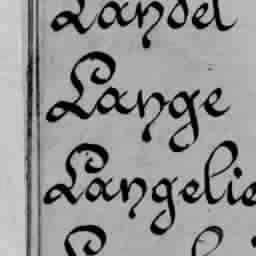 Landel
Lange
Langelie